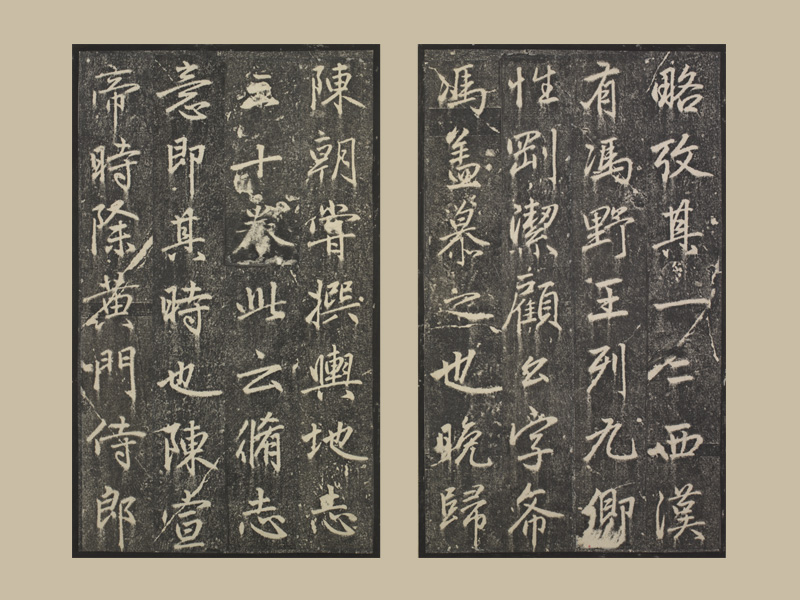 略攷其一二西漢
有馮野王列九卿
性剛潔顧公字希
馮蓋慕之也晚歸
陳朝嘗撰輿地志
三十卷此云脩志
意即其時也陳宣
帝時除黃門侍郎